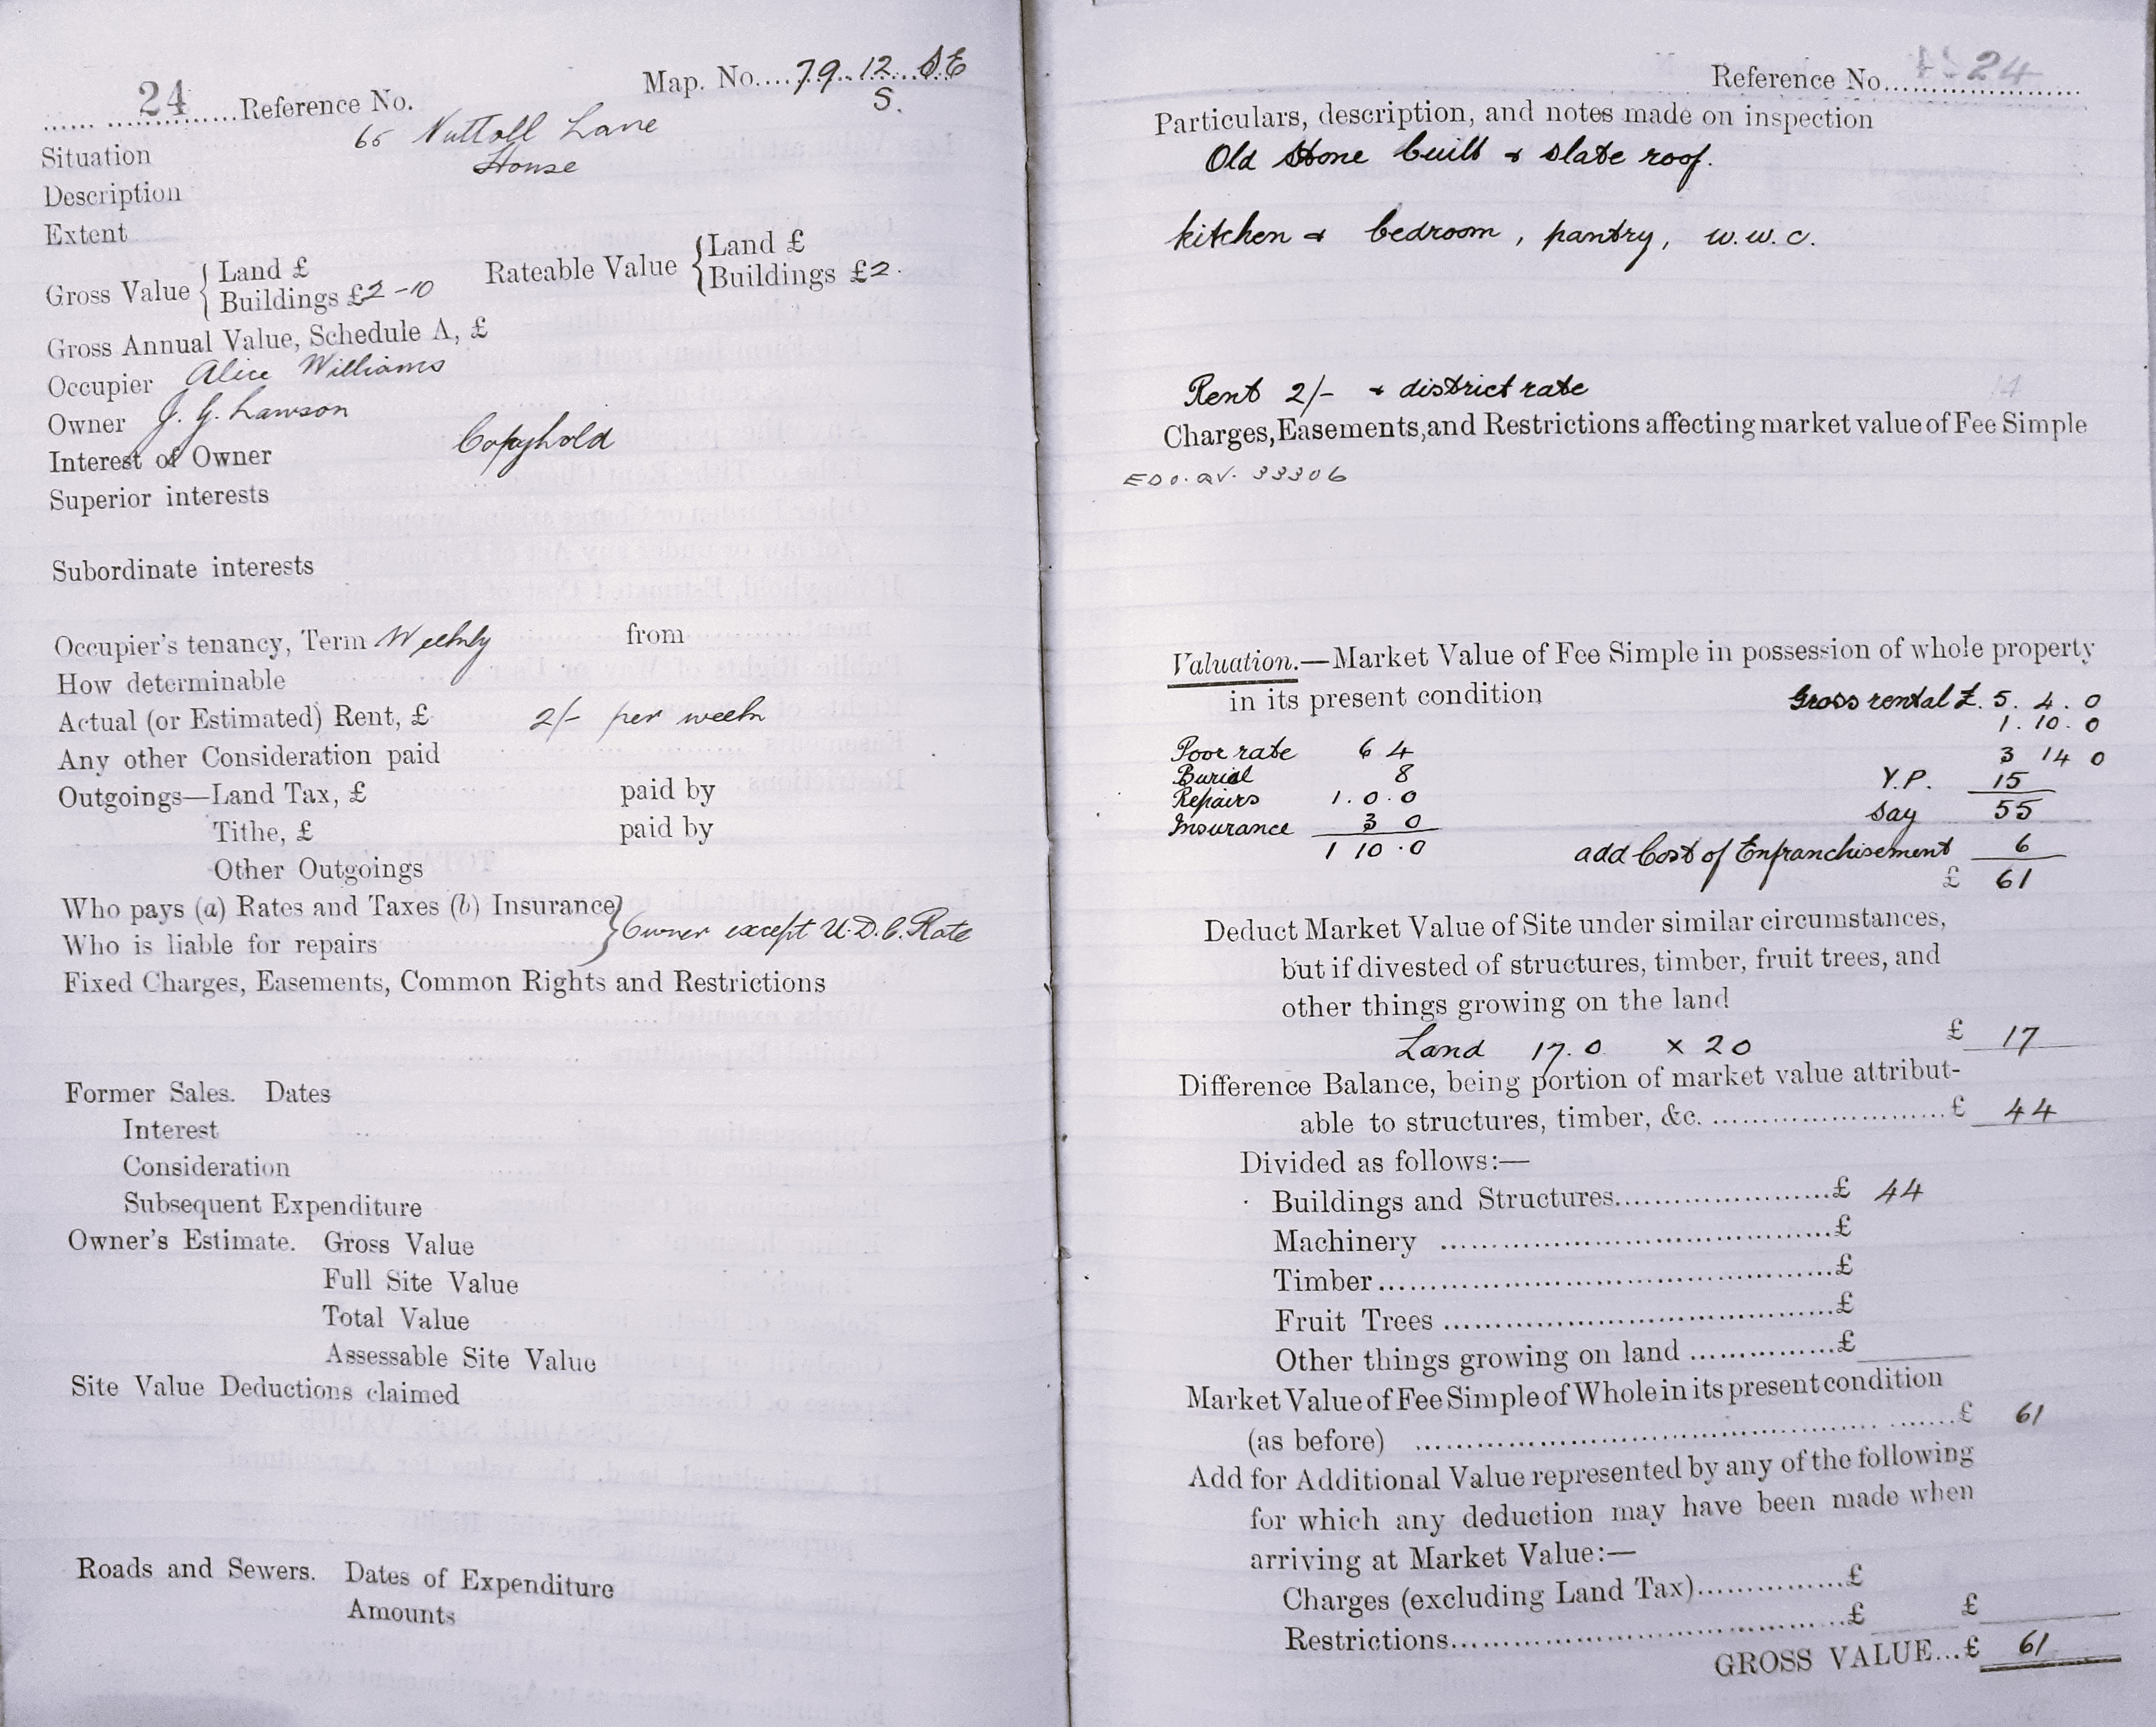 24 Reference No.
Map. No. 79. 12. SE
S.
Situation 65 Nuttall Lane
Description House
Extent
Gross Value { Land £
Buildings £2-10
Rateable Value { Land £
Buildings £2.
Gross Annual Value, Schedule A, £
Occupier Alice Williams
Owner J. G. Lawson
Interest of Owner Copyhold
Superior interests
Subordinate interests
Occupier's tenancy, Term Weekly from
How determinable
Actual (or Estimated) Rent, £ 2/- per week
Any other Consideration paid
Outgoings—Land Tax, £ paid by
Tithe, £ paid by
Other Outgoings
Who pays (a) Rates and Taxes (b) Insurance
Who is liable for repairs } Owner except U.D.C. Rate
Fixed Charges, Easements, Common Rights and Restrictions
Former Sales. Dates
Interest
Consideration
Subsequent Expenditure
Owner's Estimate. Gross Value
Full Site Value
Total Value
Assessable Site Value
Site Value Deductions claimed
Roads and Sewers. Dates of Expenditure
Amounts
Reference No. 24
Particulars, description, and notes made on inspection
Old Stone built & slate roof.
kitchen & bedroom, pantry, w.w.c.
Rent 2/- & district rate
Charges, Easements, and Restrictions affecting market value of Fee Simple
33306
Valuation.—Market Value of Fee Simple in possession of whole property
in its present condition Gross rental £. 5. 4. 0
1. 10. 0
Poor rate 6 4 3 14 0
Burial 8 Y.P. 15
Repairs 1. 0. 0 say 55
Insurance 3 0
1 10. 0 add Cost of Enfranchisement 6
£ 61
Deduct Market Value of Site under similar circumstances,
but if divested of structures, timber, fruit trees, and
other things growing on the land
Land 17. 0 x 20 £ 17
Difference Balance, being portion of market value attribut-
able to structures, timber, &c. £ 44
Divided as follows:—
Buildings and Structures £ 44
Machinery £
Timber £
Fruit Trees £
Other things growing on land £
Market Value of Fee Simple of Whole in its present condition
(as before) £ 61
Add for Additional Value represented by any of the following
for which any deduction may have been made when
arriving at Market Value:—
Charges (excluding Land Tax) £
Restrictions £ £
GROSS VALUE...£ 61